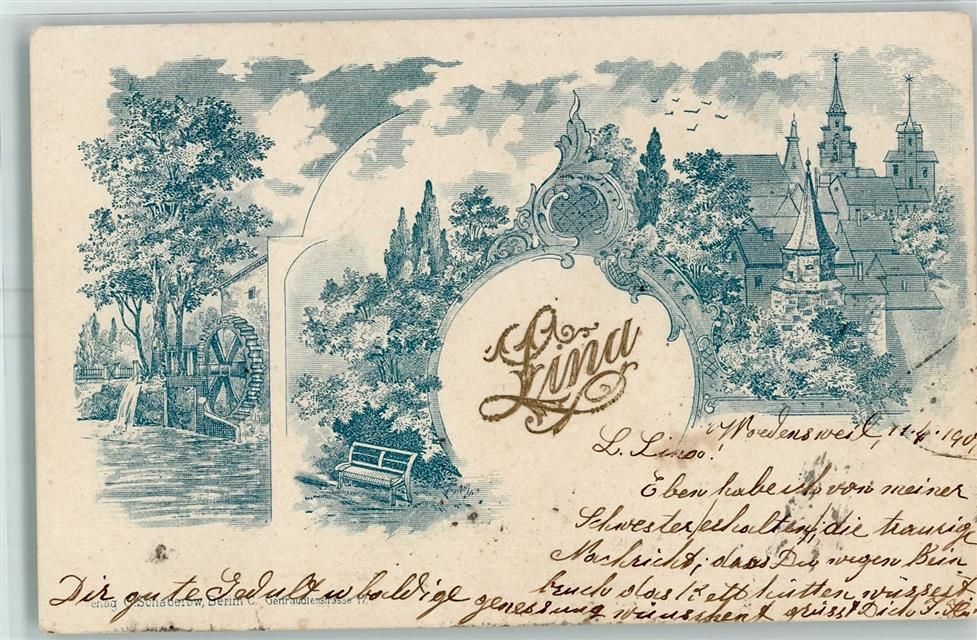 Lina
Woedensweil, 11.4.190
L. Lina!
Eben habe ich von meiner
Schwester erhalten, die traurige
Nachricht, dass Du wegen Bein
bruch das Bett hütten müssest
Dir gute Geduld u baldige genessung wünschent grüsst Dich J. H.
Verlag C. Schaberow, Berlin C. Gertraudtenstrasse 17.